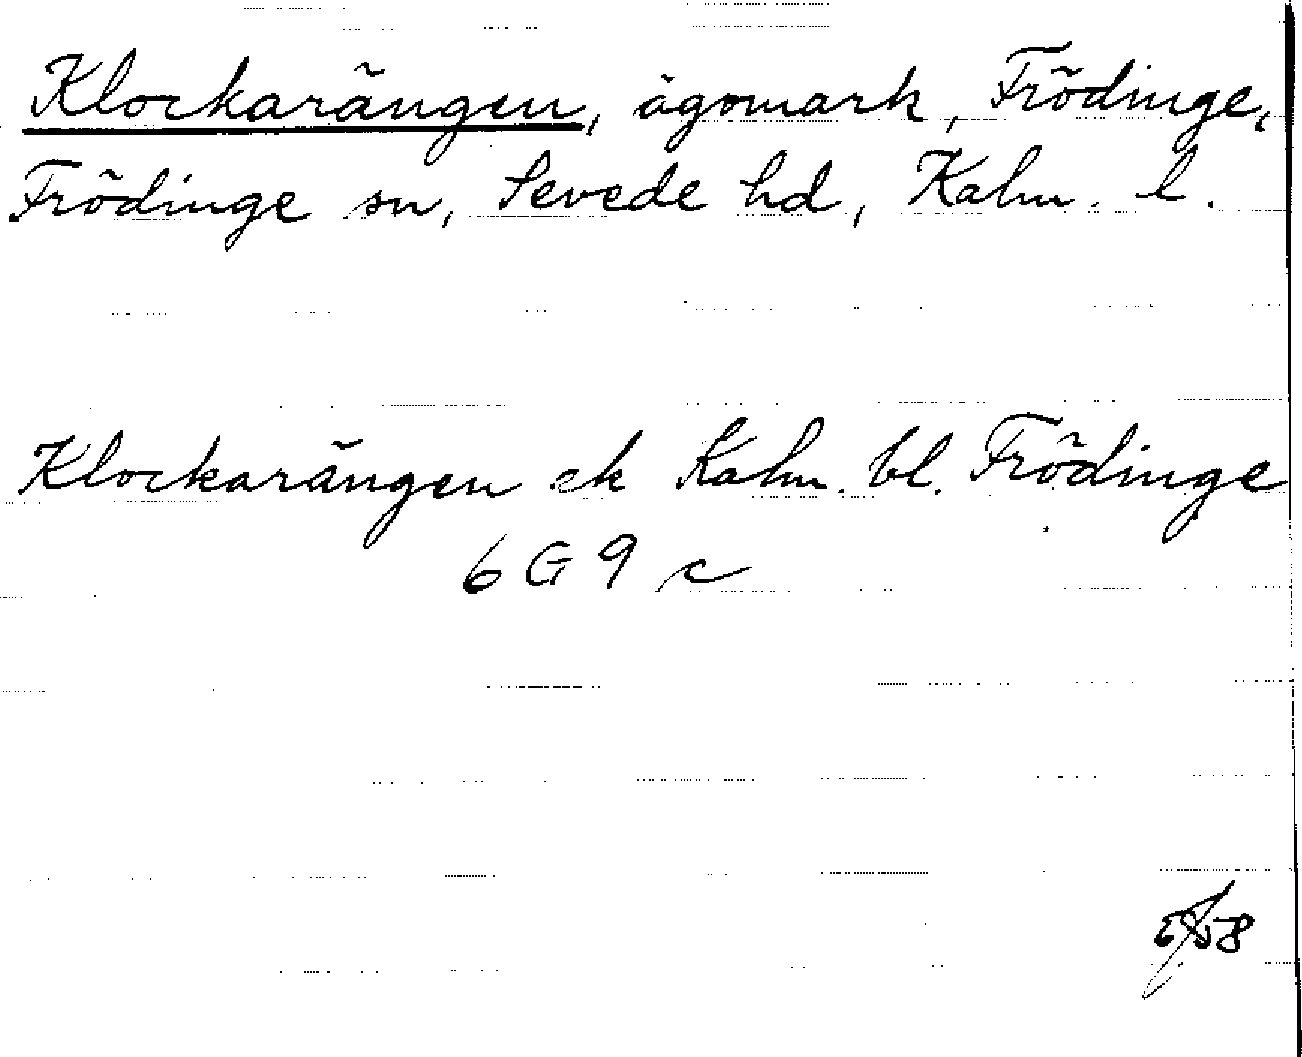 Klockarängen, ägomark, Frödinge,
Frödinge sn, Sevede hd, Kalm. l.
Klockarängen ek Kalm. bl. Frödinge
6 G 9 c